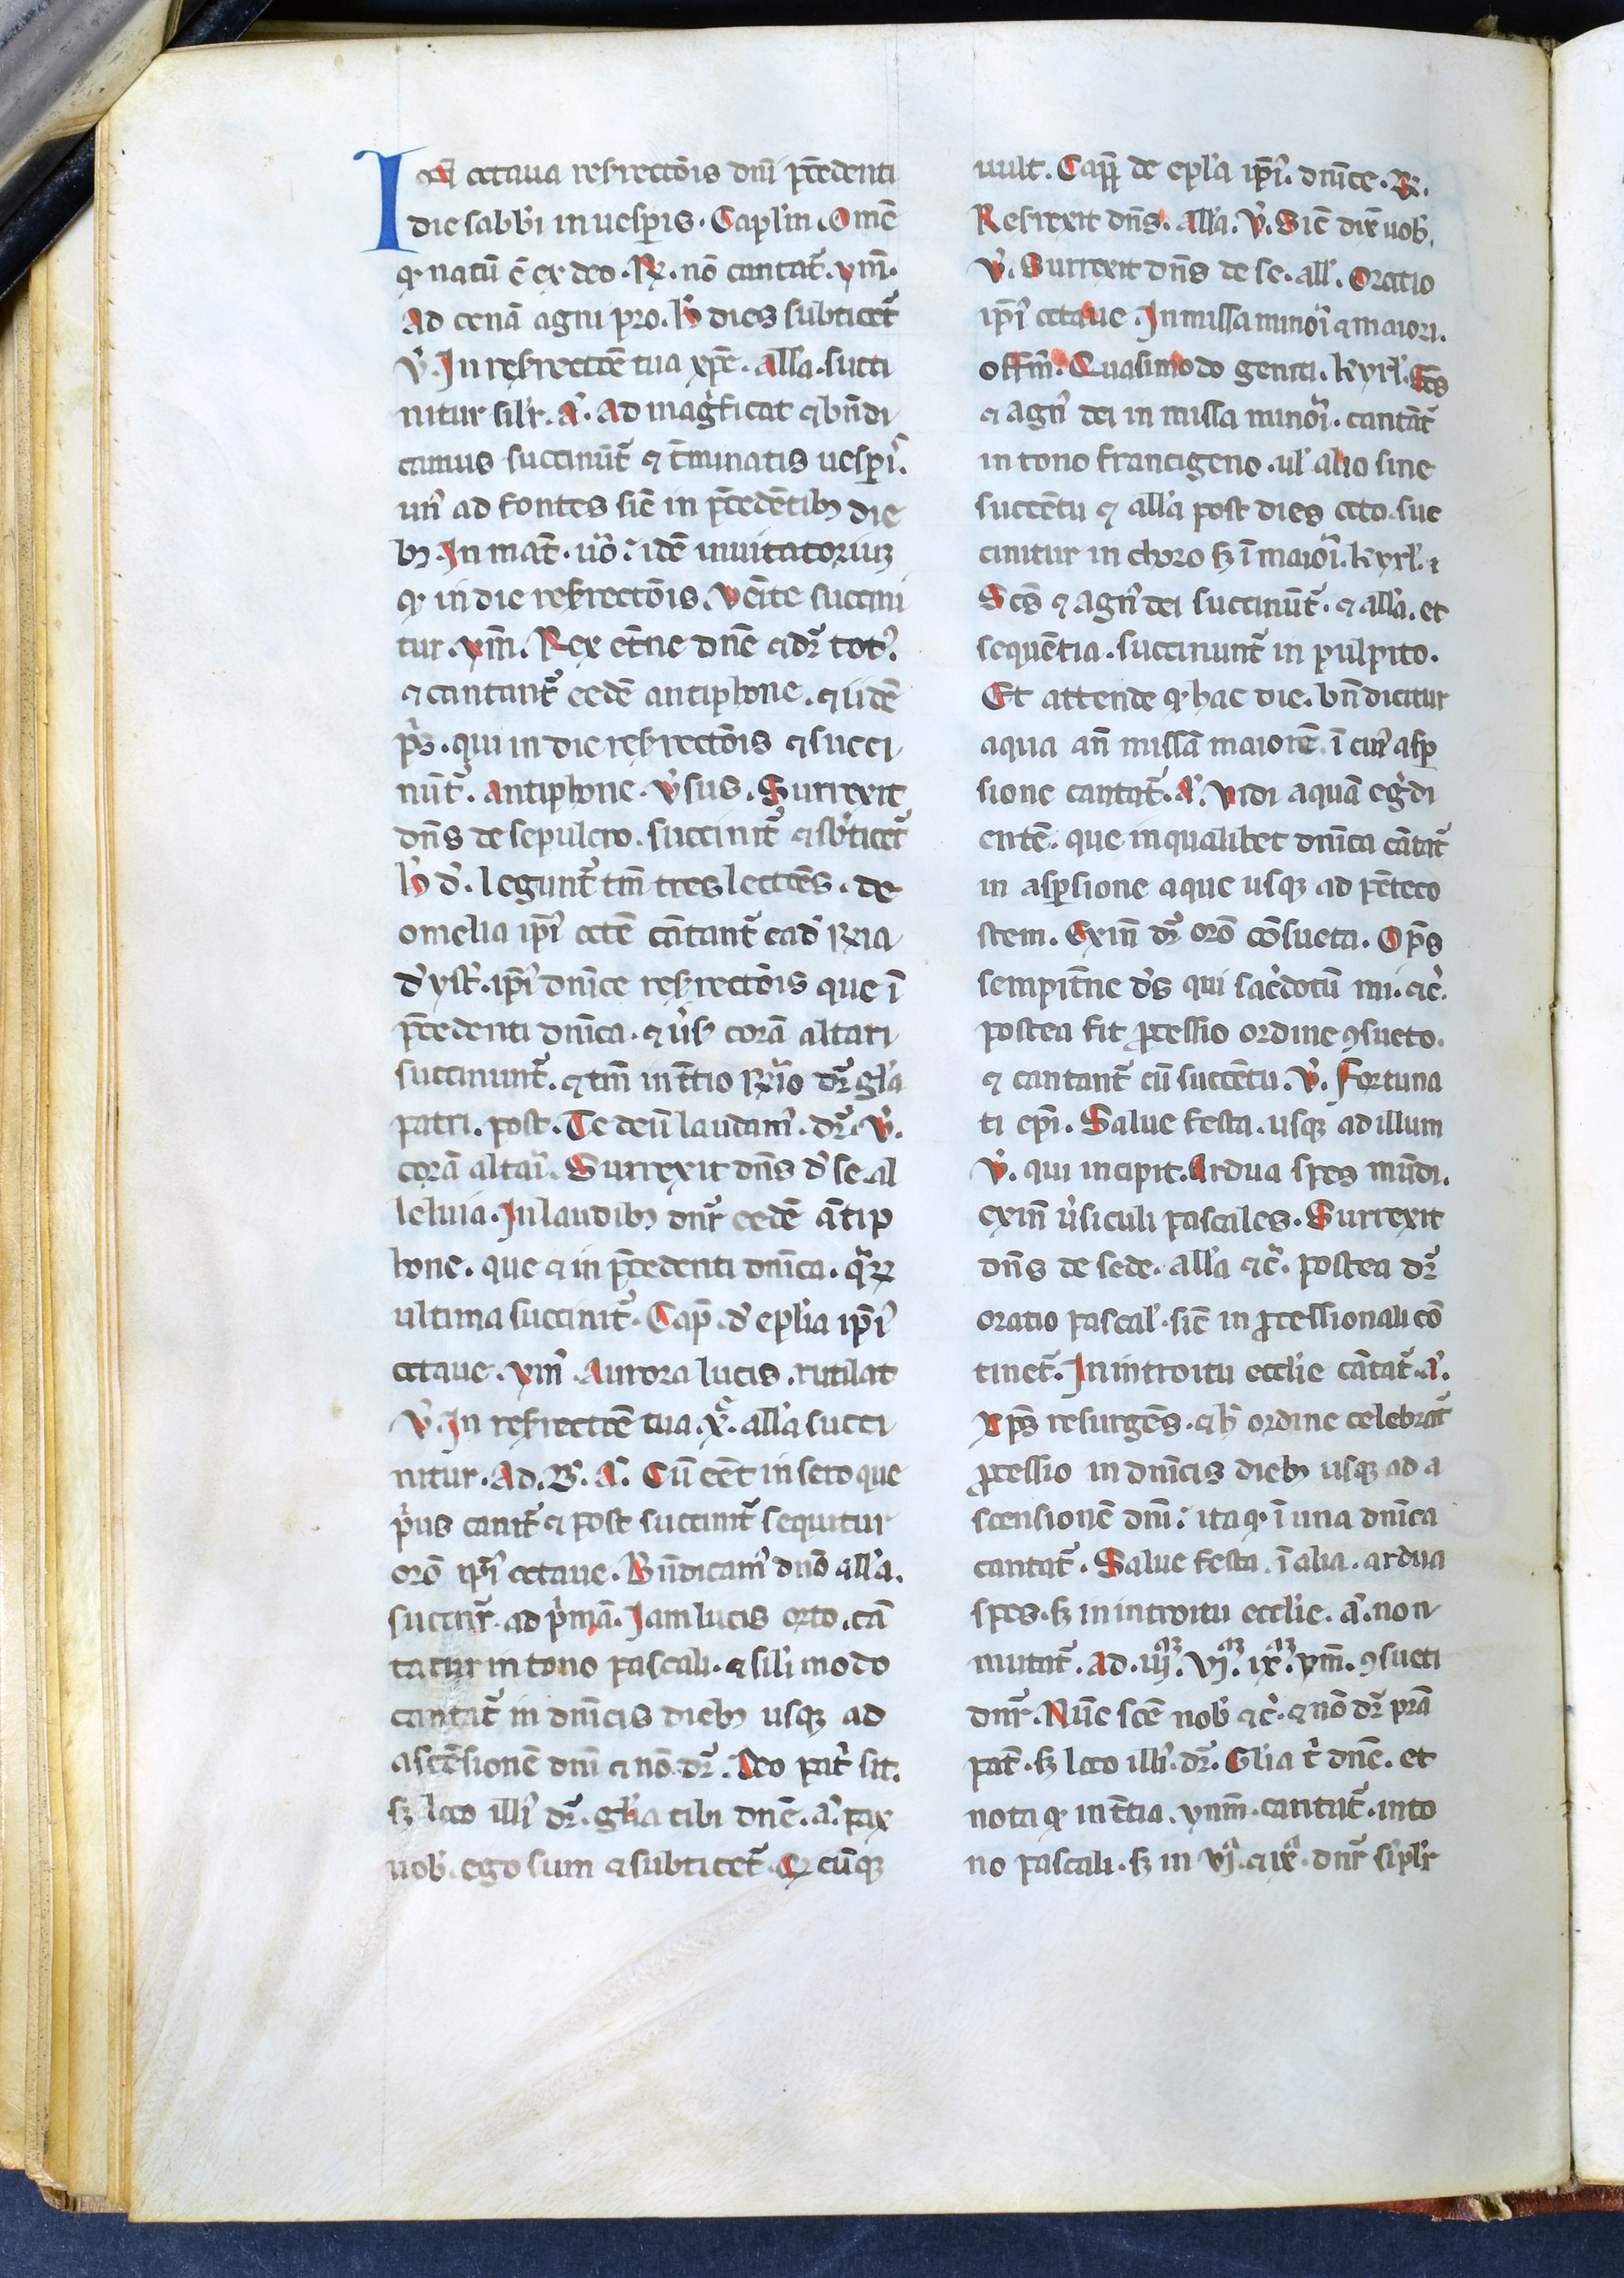 In octaua resrectōis dnī p̄cedenti
die sabb̓i in uesp̄is. Capl̓m. Omē
qd̓ natū ē ex deo. R̸. nō cantat᷑. ymn̄.
Ad cenā agni pro. h̓ dies subticet᷑
V̓. In resrectōē tua xp̄e. all̓a. succi
nitur silr̓. a᷑. Ad mag̓ficat ⁊ bn̄di
camus succinūt᷑ ⁊ t̄minatis uesp̄i᷒.
un̓ ad fontes sic̄ in p̄cedētibꝫ die
bꝫ. In mat̄. u̓o: idē inuitatoriuꝫ
qd̓ in die resrectōis. Vēite succini
tur. ymn̄. Rex et̄ne dn̄e ⁊ dr᷑ tot᷒.
⁊ cantant᷑ eedē antiphone. ⁊ iidē
p̄s. qui in die resrectōis ⁊ succi
nūt᷑. antiphone. v̓sus. Surrexit
dn̄s de sepulcro. succinit᷑ ⁊ sb̓ticet᷑
h̓ d̓. legunt᷑ tm̄ tres lectōēs. de
omelia ip̄i᷒ octē cātant᷑ ead̓ R̸ia
d̓ yst̓. ip̄i᷒ dn̄ice resrectōis que ī
p̄cedenti dn̄ica. ⁊ u̓s᷒ corā altari
succinunt᷑. ⁊ tm̄ in t̄tio R̸io dr᷑ gl̓a
patri. post. Te deū laudam᷒. dr᷑. V̓.
corā altari. Surrexit dn̄s d̓ se. al
leluia. In laudibꝫ dnr᷑ eedē ātip
hone. que ⁊ in p̄cedenti dn̄ica. q̄rꝝ
ultima succinit᷑. Cap̄. d̓ epl̓ia ip̄i᷒
octaue. ymn̄. Aurora lucis. rutilat
V̓. In resrectōē tua. x̄. all̓a succi
nitur. Ad. B̓. a᷑. Cū eēt in sero que
p̓us canit᷑ ⁊ post succinit᷑ sequitur
orō ip̄i᷒ octaue. Bn̄dicam᷒ dn̄o all̓a.
succinr᷑. ad p̓mā. Iam lucis orto. cā
tatur in tono pascali. ⁊ sil̓i modo
cantat᷑ in dn̄icis diebꝫ usqꝫ ad
ascēsionē dnī ⁊ nō dr᷑. Deo pat̓ sit.
sꝫ loco illi᷒ dr᷑. gl̓ia tibi dn̄e. a᷑. pax
uob̓. ego sum ⁊ subticet᷑. Q̓cūqꝫ
uult. Cap̄ de epl̓a ip̄i᷒. dn̄ice. R̸.
Resrexit dn̄s. all̓a. V̓. Sic̄ dix̄ uob̓.
V̓. Surrexit dn̄s de se. all̓. Oratio
ip̄i᷒ octaue. In missa minori ⁊ maiori.
offm̄. Quasimodo geniti. kyrl̓. Sc̄s
⁊ agn᷒ dei in missa minori. cantāt᷑
in tono francigeno. ul̓ alio sine
succētu ⁊ all̓a post dies octo. suc
cinitur in choro sꝫ ī maiori. kyrl̓. ⁊
Sc̄s ⁊ agn᷒ dei succinūt᷑. ⁊ all̓a. et
sequētia. succinunt᷑ in pulpito.
Et attende qd̓ hac die. bn̄dicitur
aqua an̄ missā maiorē. ī cui᷒ asp̄
sione cantat᷑. a᷑. Vidi aquā eg̓di
entē. que in qualibet dn̄ica cātat᷑
in asp̄sione aque usqꝫ ad pēteco
stem. Exin̄ dr᷑ orō cōsueta. Op̄s
sempit̄ne d̓s qui sac̓dotū mi. ⁊ c̓.
postea fit ꝓcessio ordine ꝯsueto.
⁊ cantant᷑ cū succētu. V̓. Fortuna
ti ep̄i. Salue festa. usqꝫ ad illum
V̓. qui incipit. Ardua spes mūdi.
exin̄ u̓siculi pascales. Surrexit
dn̄s de sede. all̓a ⁊ c̓. postea dr᷑
oratio pascal̓. sic̄ in ꝓcessionali cō
tinet᷑. In introitu eccl̓ie cātat᷑. a᷑.
Xp̄s resurgēs. ⁊ h̓ ordine celebrat᷑
ꝓcessio in dn̄icis diebꝫ usqꝫ ad a
scensionē dnī: ita qd̓ ī una dn̄ica
cantat᷑. Salue festa. ī alia. ardua
spes. sꝫ in introitu eccl̓ie. a᷑. non
mutat᷑. Ad. iij. vj. ix. ymn̄. ꝯsueti
dnr᷑. Nūc sc̄e nob̓ ⁊ c̓. ⁊ nō dr᷑ p̄ra
pat̄. sꝫ loco illi᷒. dr᷑. Gl̓ia t̓ dn̄e. et
nota qd̓ in t̄tia. ynm̄. cantat᷑. in to
no pascali. sꝫ in vj. ⁊ ix. dnr᷑ siplr̓